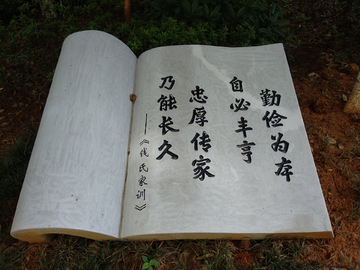 勤俭为本
自必丰亨
忠厚传家
乃能长久
——《钱氏家训》